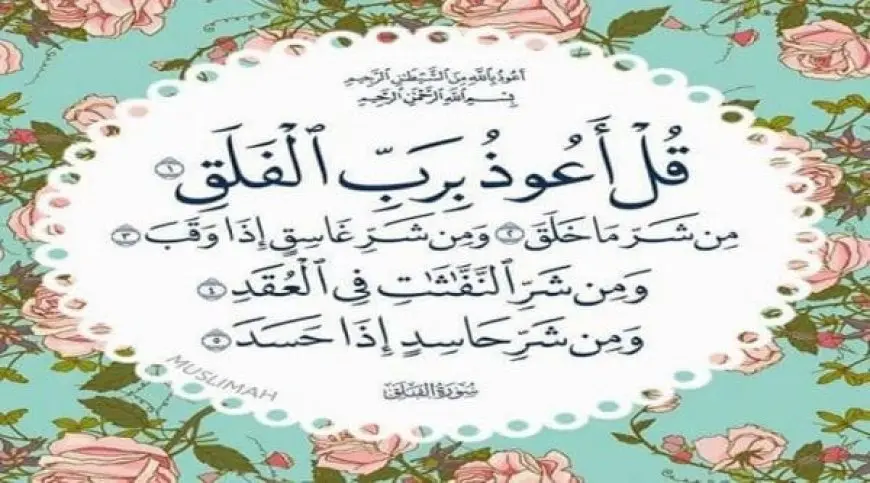 أعوذ بالله من الشيطن الرجيم
بسم الله الرحمن الرحيم
قُلْ أَعُوذُ بِرَبِّ ٱلْفَلَقِ ۝١
مِن شَرِّ مَا خَلَقَ ۝٢ وَمِن شَرِّ غَاسِقٍ إِذَا وَقَبَ ۝٣
وَمِن شَرِّ ٱلنَّفَّٰثَٰتِ فِي ٱلْعُقَدِ ۝٤
وَمِن شَرِّ حَاسِدٍ إِذَا حَسَدَ ۝٥
MUSLIMAH
سورة الفلق